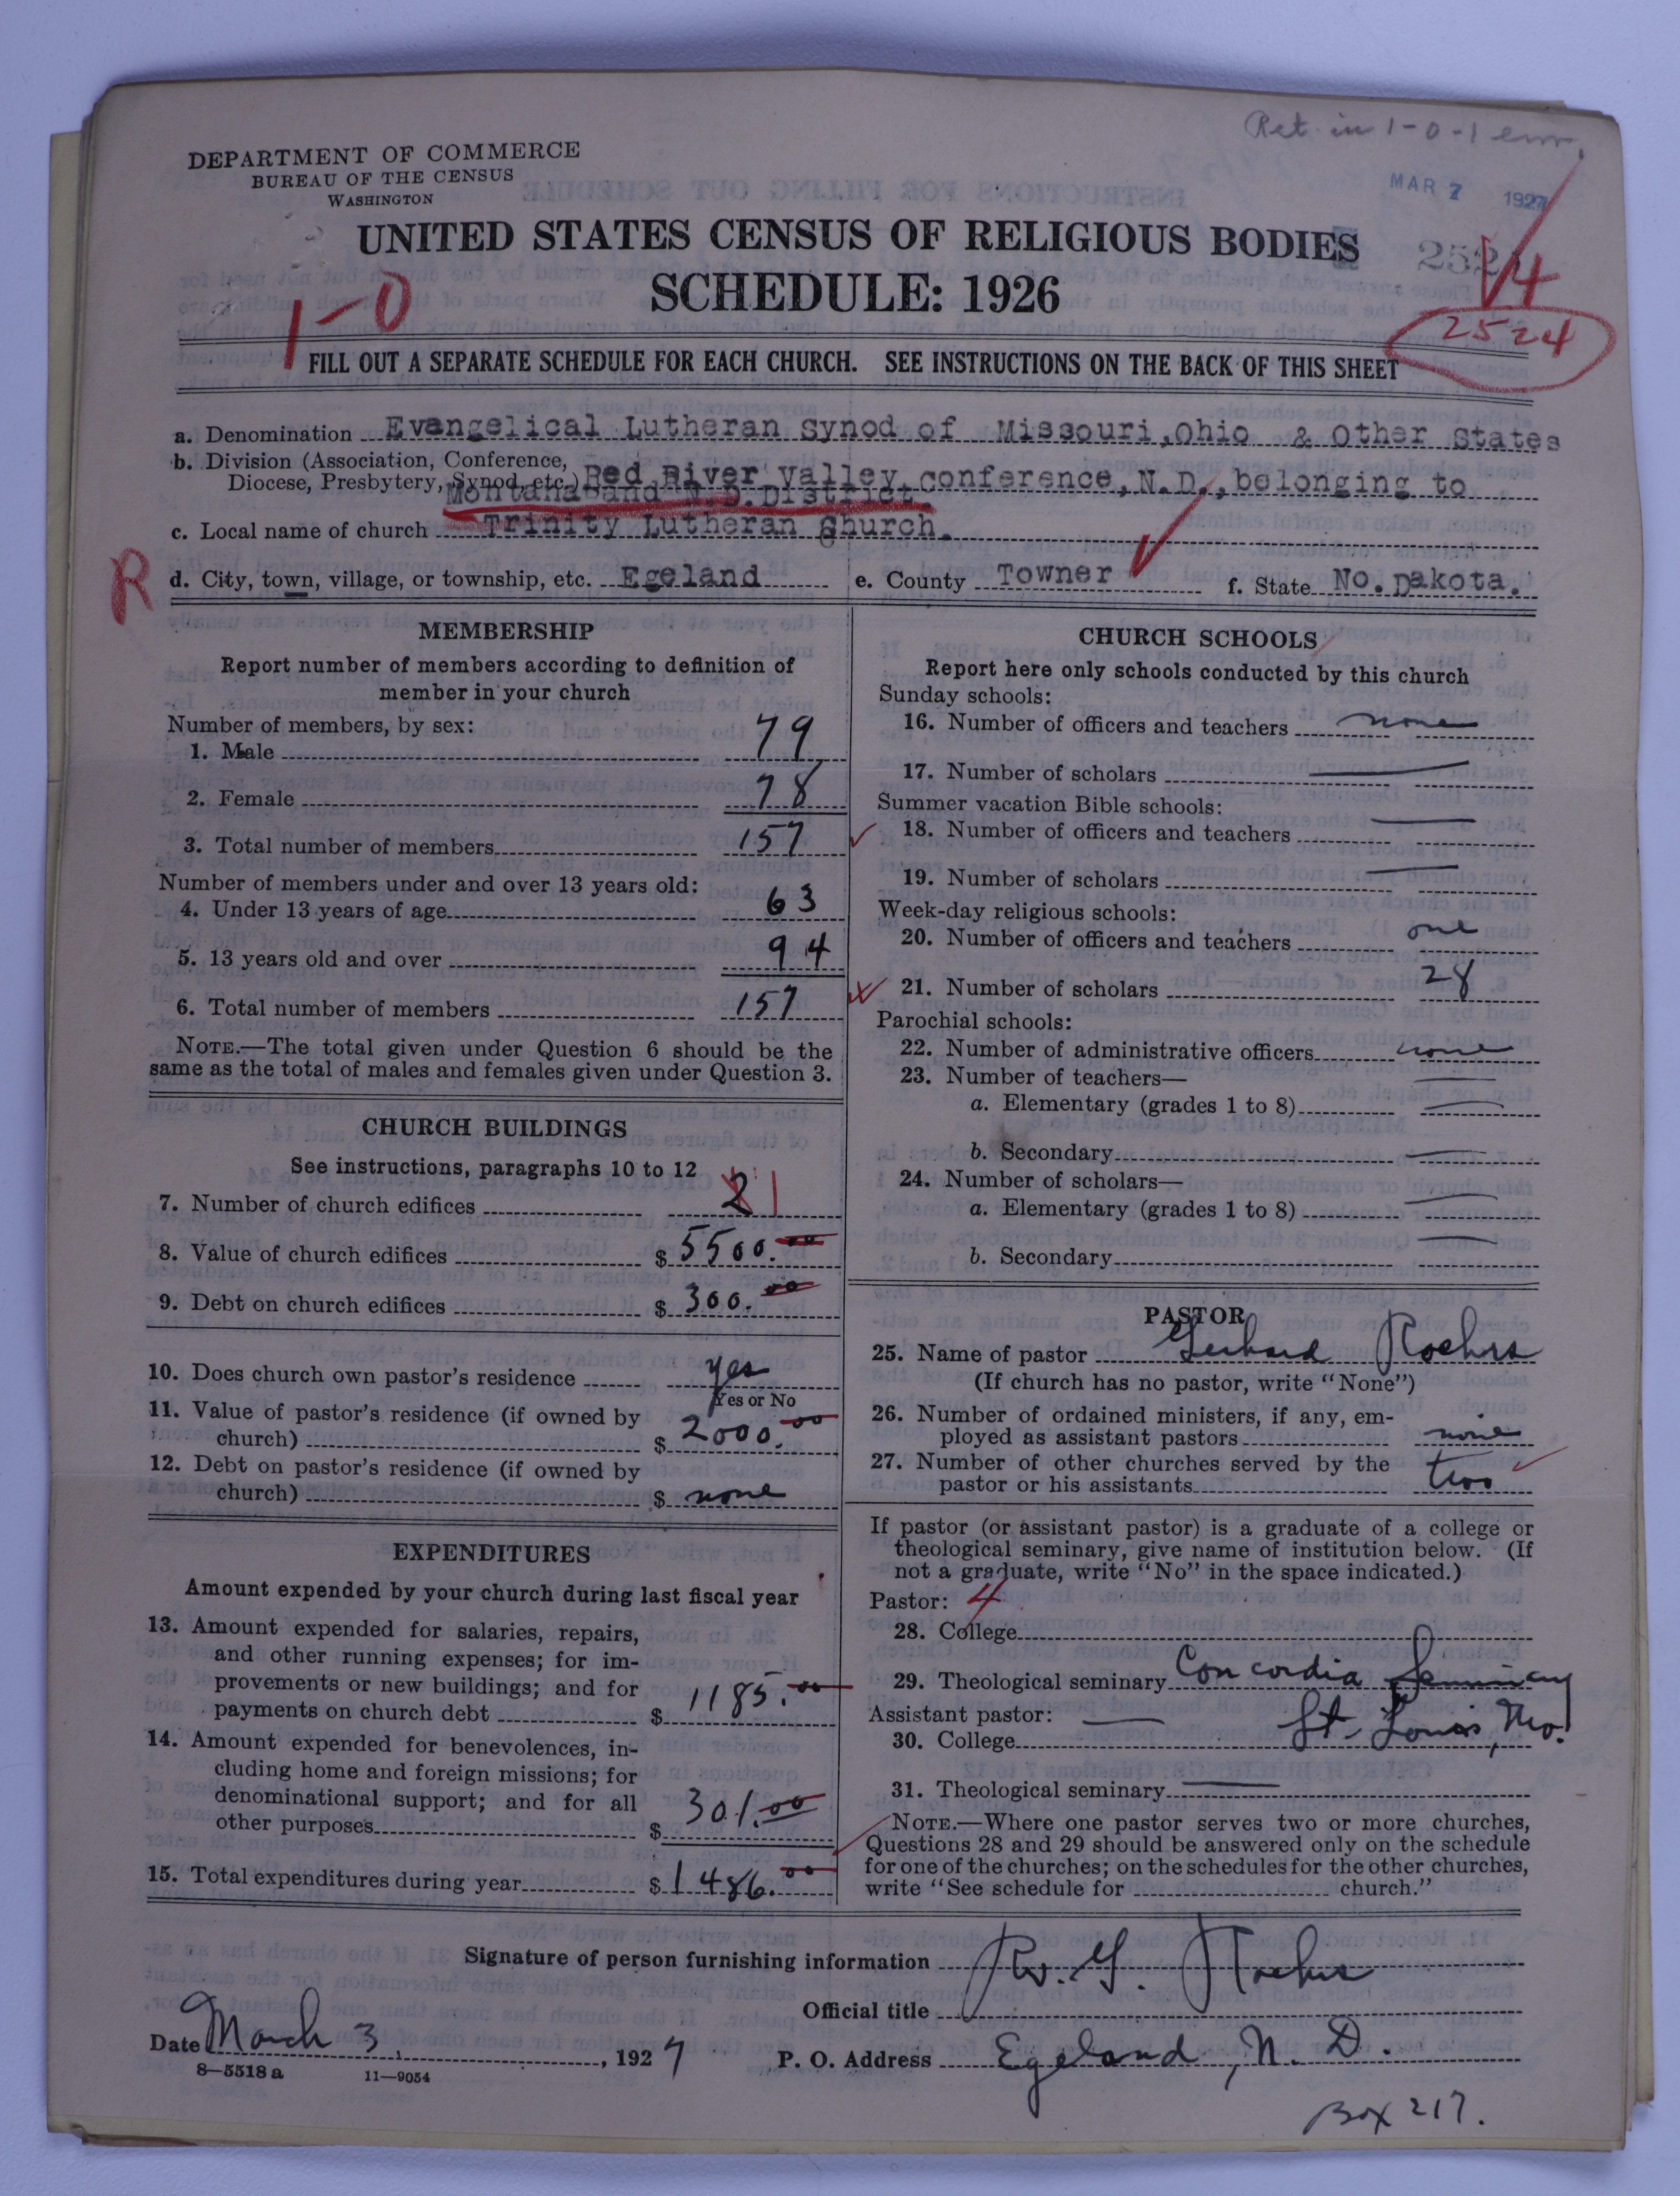 Ret. in 1-0-1 em.
DEPARTMENT OF COMMERCE
BUREAU OF THE CENSUS
WASHINGTON
MAR 7 1927
UNITED STATES CENSUS OF RELIGIOUS BODIES
SCHEDULE: 1926
1-0
4
2524
FILL OUT A SEPARATE SCHEDULE FOR EACH CHURCH. SEE INSTRUCTIONS ON THE BACK OF THIS SHEET
a. Denomination Evangelical Lutheran Synod of Missouri, Ohio & Other States
b. Division (Association, Conference,
Diocese, Presbytery, Synod, etc.) Red River Valley Conference, N.D., belonging to
Montana and N.D. District.
c. Local name of church Trinity Lutheran Church.
R
d. City, town, village, or township, etc. Egeland e. County Towner f. State No. Dakota.
MEMBERSHIP
Report number of members according to definition of
member in your church
Number of members, by sex:
1. Male 79
2. Female 78
3. Total number of members 157
Number of members under and over 13 years old:
4. Under 13 years of age 63
5. 13 years old and over 94
6. Total number of members 157
NOTE.—The total given under Question 6 should be the
same as the total of males and females given under Question 3.
CHURCH BUILDINGS
See instructions, paragraphs 10 to 12
7. Number of church edifices 2 1
8. Value of church edifices $ 5500.00
9. Debt on church edifices $ 300.00
10. Does church own pastor's residence yes
Yes or No
11. Value of pastor's residence (if owned by
church) $ 2000.00
12. Debt on pastor's residence (if owned by
church) $ none
EXPENDITURES
Amount expended by your church during last fiscal year
13. Amount expended for salaries, repairs,
and other running expenses; for im-
provements or new buildings; and for
payments on church debt $ 1185.00
14. Amount expended for benevolences, in-
cluding home and foreign missions; for
denominational support; and for all
other purposes $ 301.00
15. Total expenditures during year $ 1486.00
CHURCH SCHOOLS
Report here only schools conducted by this church
Sunday schools:
16. Number of officers and teachers none
17. Number of scholars
Summer vacation Bible schools:
18. Number of officers and teachers
19. Number of scholars
Week-day religious schools:
20. Number of officers and teachers one
21. Number of scholars 28
Parochial schools:
22. Number of administrative officers none
23. Number of teachers—
a. Elementary (grades 1 to 8)
b. Secondary
24. Number of scholars—
a. Elementary (grades 1 to 8)
b. Secondary
PASTOR
25. Name of pastor Gerhard Roehrs
(If church has no pastor, write "None")
26. Number of ordained ministers, if any, em-
ployed as assistant pastors none
27. Number of other churches served by the
pastor or his assistants two
If pastor (or assistant pastor) is a graduate of a college or
theological seminary, give name of institution below. (If
not a graduate, write "No" in the space indicated.)
Pastor: 4
28. College
29. Theological seminary Concordia Seminary
Assistant pastor: St. Louis, Mo.
30. College
31. Theological seminary
NOTE.—Where one pastor serves two or more churches,
Questions 28 and 29 should be answered only on the schedule
for one of the churches; on the schedules for the other churches,
write "See schedule for church."
Signature of person furnishing information Rev. G. Roehrs
Official title
Date March 3, 1927 P. O. Address Egeland, N. D.
8—5518 a 11—9054
Box 217.